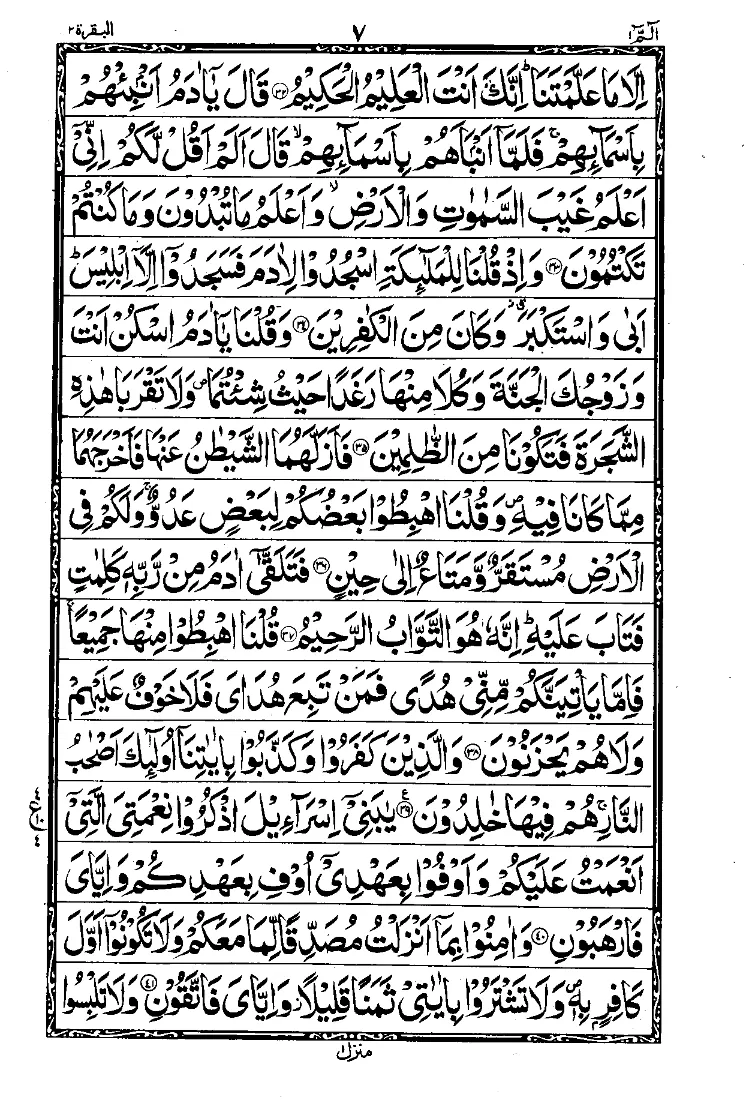 الٓمّٓ ١
٧
البقرة ٢
اِلَّا مَا عَلَّمْتَنَاؕ اِنَّكَ اَنْتَ الْعَلِیْمُ الْحَكِیْمُ ۝۳۲ قَالَ یٰۤاٰدَمُ اَنْۢبِئْهُمْ
بِاَسْمَآىِٕهِمْۚ فَلَمَّاۤ اَنْۢبَاَهُمْ بِاَسْمَآىِٕهِمْۙ قَالَ اَلَمْ اَقُلْ لَّكُمْ اِنِّیْۤ
اَعْلَمُ غَیْبَ السَّمٰوٰتِ وَالْاَرْضِۙ وَاَعْلَمُ مَا تُبْدُوْنَ وَمَا كُنْتُمْ
تَكْتُمُوْنَ ۝۳۳ وَاِذْ قُلْنَا لِلْمَلٰٓىِٕكَةِ اسْجُدُوْا لِاٰدَمَ فَسَجَدُوْۤا اِلَّاۤ اِبْلِیْسَؕ
اَبٰی وَاسْتَكْبَرَ ؗ وَكَانَ مِنَ الْكٰفِرِیْنَ ۝۳۴ وَقُلْنَا یٰۤاٰدَمُ اسْكُنْ اَنْتَ
وَزَوْجُكَ الْجَنَّةَ وَكُلَا مِنْهَا رَغَدًا حَیْثُ شِئْتُمَا۪ وَلَا تَقْرَبَا هٰذِهِ
الشَّجَرَةَ فَتَكُوْنَا مِنَ الظّٰلِمِیْنَ ۝۳۵ فَاَزَلَّهُمَا الشَّیْطٰنُ عَنْهَا فَاَخْرَجَهُمَا
مِمَّا كَانَا فِیْهِ۪ وَقُلْنَا اهْبِطُوْا بَعْضُكُمْ لِبَعْضٍ عَدُوٌّۚ وَلَكُمْ فِی
الْاَرْضِ مُسْتَقَرٌّ وَّمَتَاعٌ اِلٰی حِیْنٍ ۝۳۶ فَتَلَقّٰۤی اٰدَمُ مِنْ رَّبِّهٖ كَلِمٰتٍ
فَتَابَ عَلَیْهِؕ اِنَّهٗ هُوَ التَّوَّابُ الرَّحِیْمُ ۝۳۷ قُلْنَا اهْبِطُوْا مِنْهَا جَمِیْعًاۚ
فَاِمَّا یَاْتِیَنَّكُمْ مِّنِّیْ هُدًی فَمَنْ تَبِعَ هُدَایَ فَلَا خَوْفٌ عَلَیْهِمْ
وَلَا هُمْ یَحْزَنُوْنَ ۝۳۸ وَالَّذِیْنَ كَفَرُوْا وَكَذَّبُوْا بِاٰیٰتِنَاۤ اُولٰٓىِٕكَ اَصْحٰبُ
النَّارِۚ هُمْ فِیْهَا خٰلِدُوْنَ ۝۳۹ع یٰبَنِیْۤ اِسْرَآءِیْلَ اذْكُرُوْا نِعْمَتِیَ الَّتِیْۤ
اَنْعَمْتُ عَلَیْكُمْ وَاَوْفُوْا بِعَهْدِیْۤ اُوْفِ بِعَهْدِكُمْۚ وَاِیَّایَ
فَارْهَبُوْنِ ۝۴۰ وَاٰمِنُوْا بِمَاۤ اَنْزَلْتُ مُصَدِّقًا لِّمَا مَعَكُمْ وَلَا تَكُوْنُوْۤا اَوَّلَ
كَافِرٍۭ بِهٖ۪ وَلَا تَشْتَرُوْا بِاٰیٰتِیْ ثَمَنًا قَلِیْلًاؗ وَاِیَّایَ فَاتَّقُوْنِ ۝۴۱ وَلَا تَلْبِسُوا
منزل ١